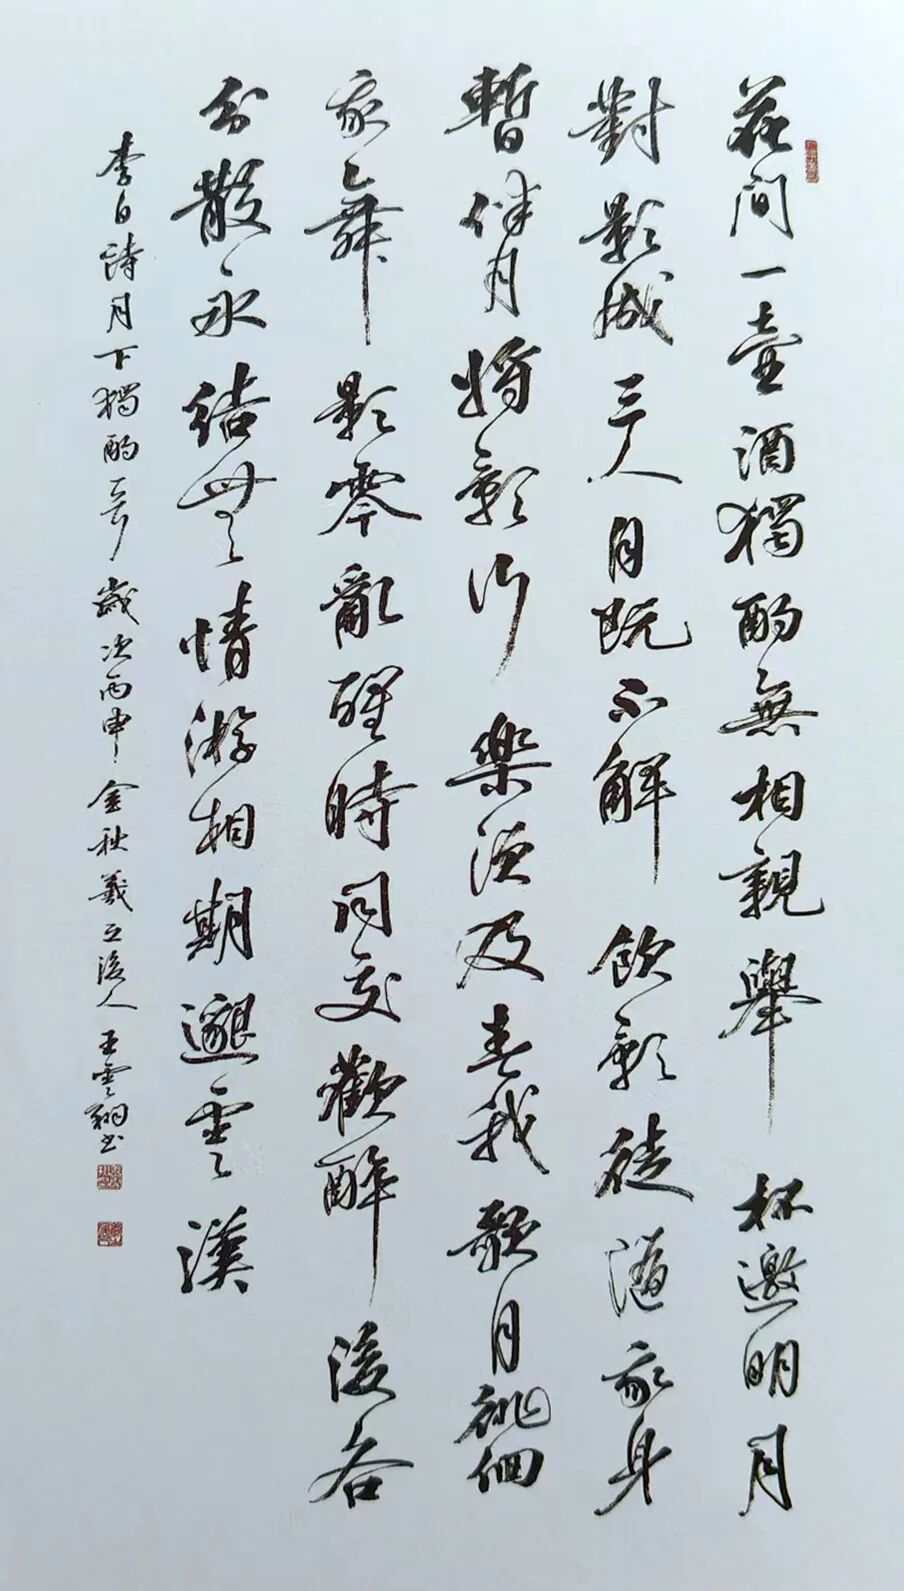 花間一壺酒獨酌無相親舉杯邀明月
對影成三人月既不解飲影徒隨我身
暫伴月將影行樂須及春我歌月徘徊
我舞影零亂醒時同交歡醉後各
分散永結無情游相期邈雲漢
李白詩月下獨酌一首歲次丙申金秋羲之後人王雲翔书